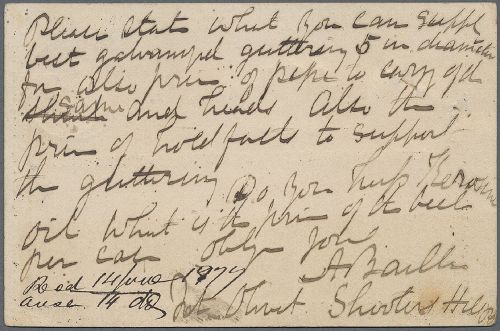 Please state what you can suppl
best galvanized guttering 5 in diameter
for also price of pipe to carry off
same and heads Also the
price of holdfasts to support
the guttering Do you keep Kerosine
oil What is the price of the best
per case oblige yours
A Baillie
Recd 14 June 1877
ansd 14 do
Shooters Hill